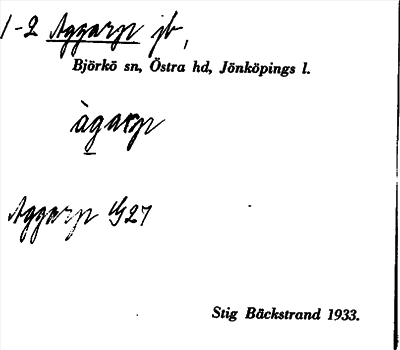 1-2 Aggarp jb,
Björkö sn, Östra hd, Jönköpings l.
àgarp
Aggarp 1/927
Stig Bäckstrand 1933.